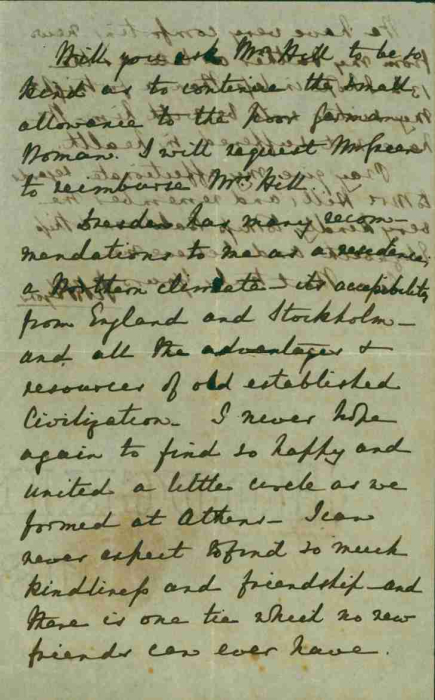 Will you ask Mr Hill to be so
kind as to continue the small
allowance to the poor German
Woman. I will request Mr Green
to reimburse Mr. Hill.
Dresden has many recom-
mendations to me as a residence,
a Northern climate - its accessibility
from England and Stockholm -
and all the advantages &
resources of old established
Civilization - I never hope
again to find so happy and
united a little circle as we
formed at Athens - I can
never expect to find so much
kindliness and friendship - and
there is one tie which no new
friends can ever have.